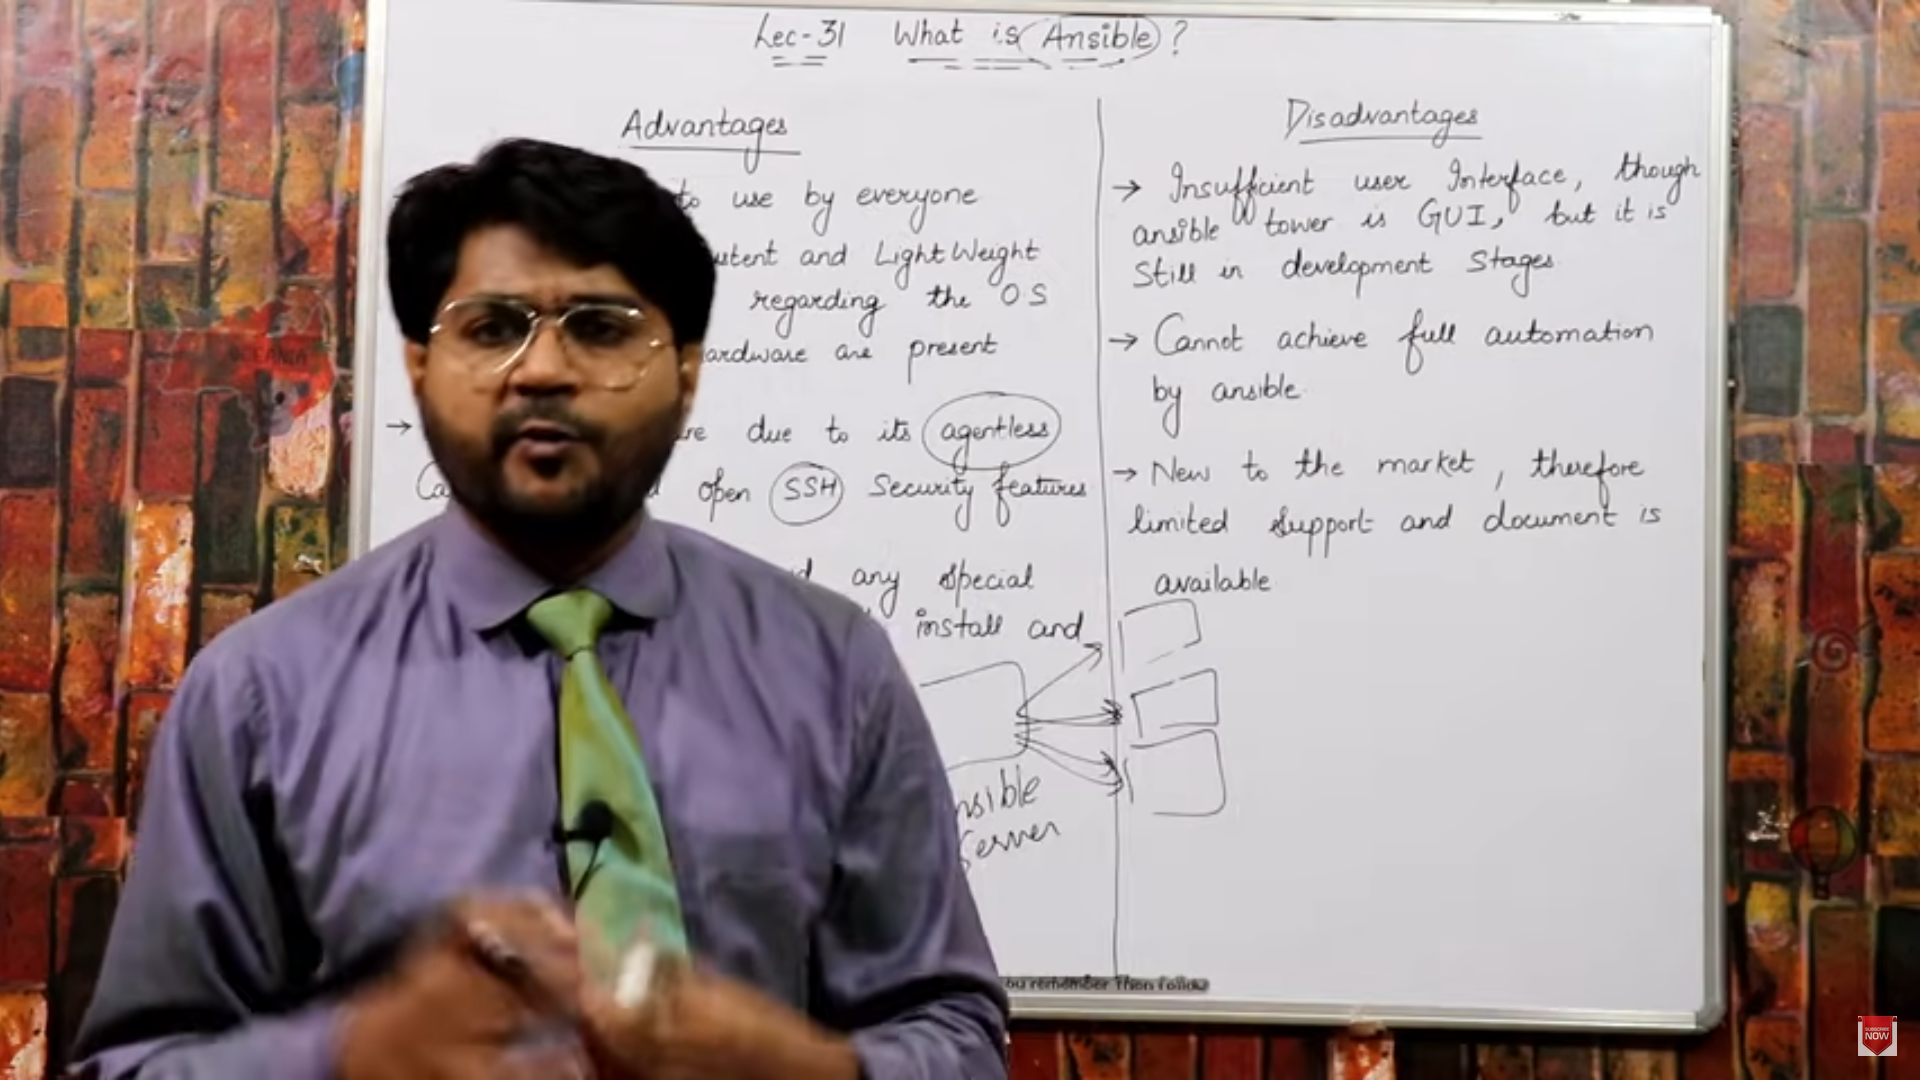 Lec-31 What is Ansible ?
Advantages
to use by everyone
and Light Weight
regarding the OS
are present
→ due to its agentless
open SSH Security features
any special
install and
Server
Disadvantages
→ Insufficient user Interface, though
ansible tower is GUI, but it is
Still in development Stages.
→ Cannot achieve full automation
by ansible.
→ New to the market, therefore
limited support and document is
available
remember Then follow
SUBSCRIBE
NOW